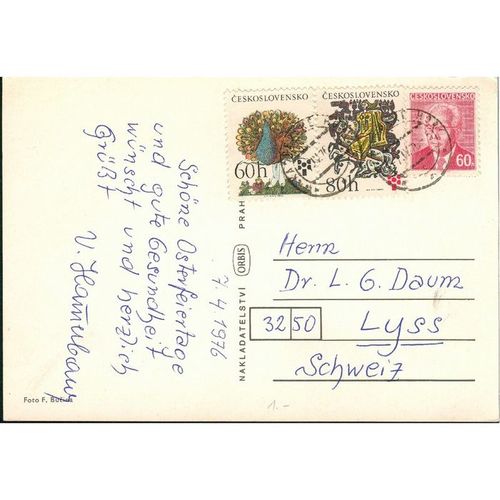 Schöne Osterfeiertage
und gute Gesundheit
wünscht und herzlich
Grüßt
7.4.1976
Foto F.
NAKLADATELSTVÍ ORBIS PRAH
ČESKOSLOVENSKO
60h
ČESKOSLOVENSKO
80h
ČESKOSLOVENSKO
60h
Herrn
Dr. L. G. Daum
3250
Lyss
Schweiz
1.-